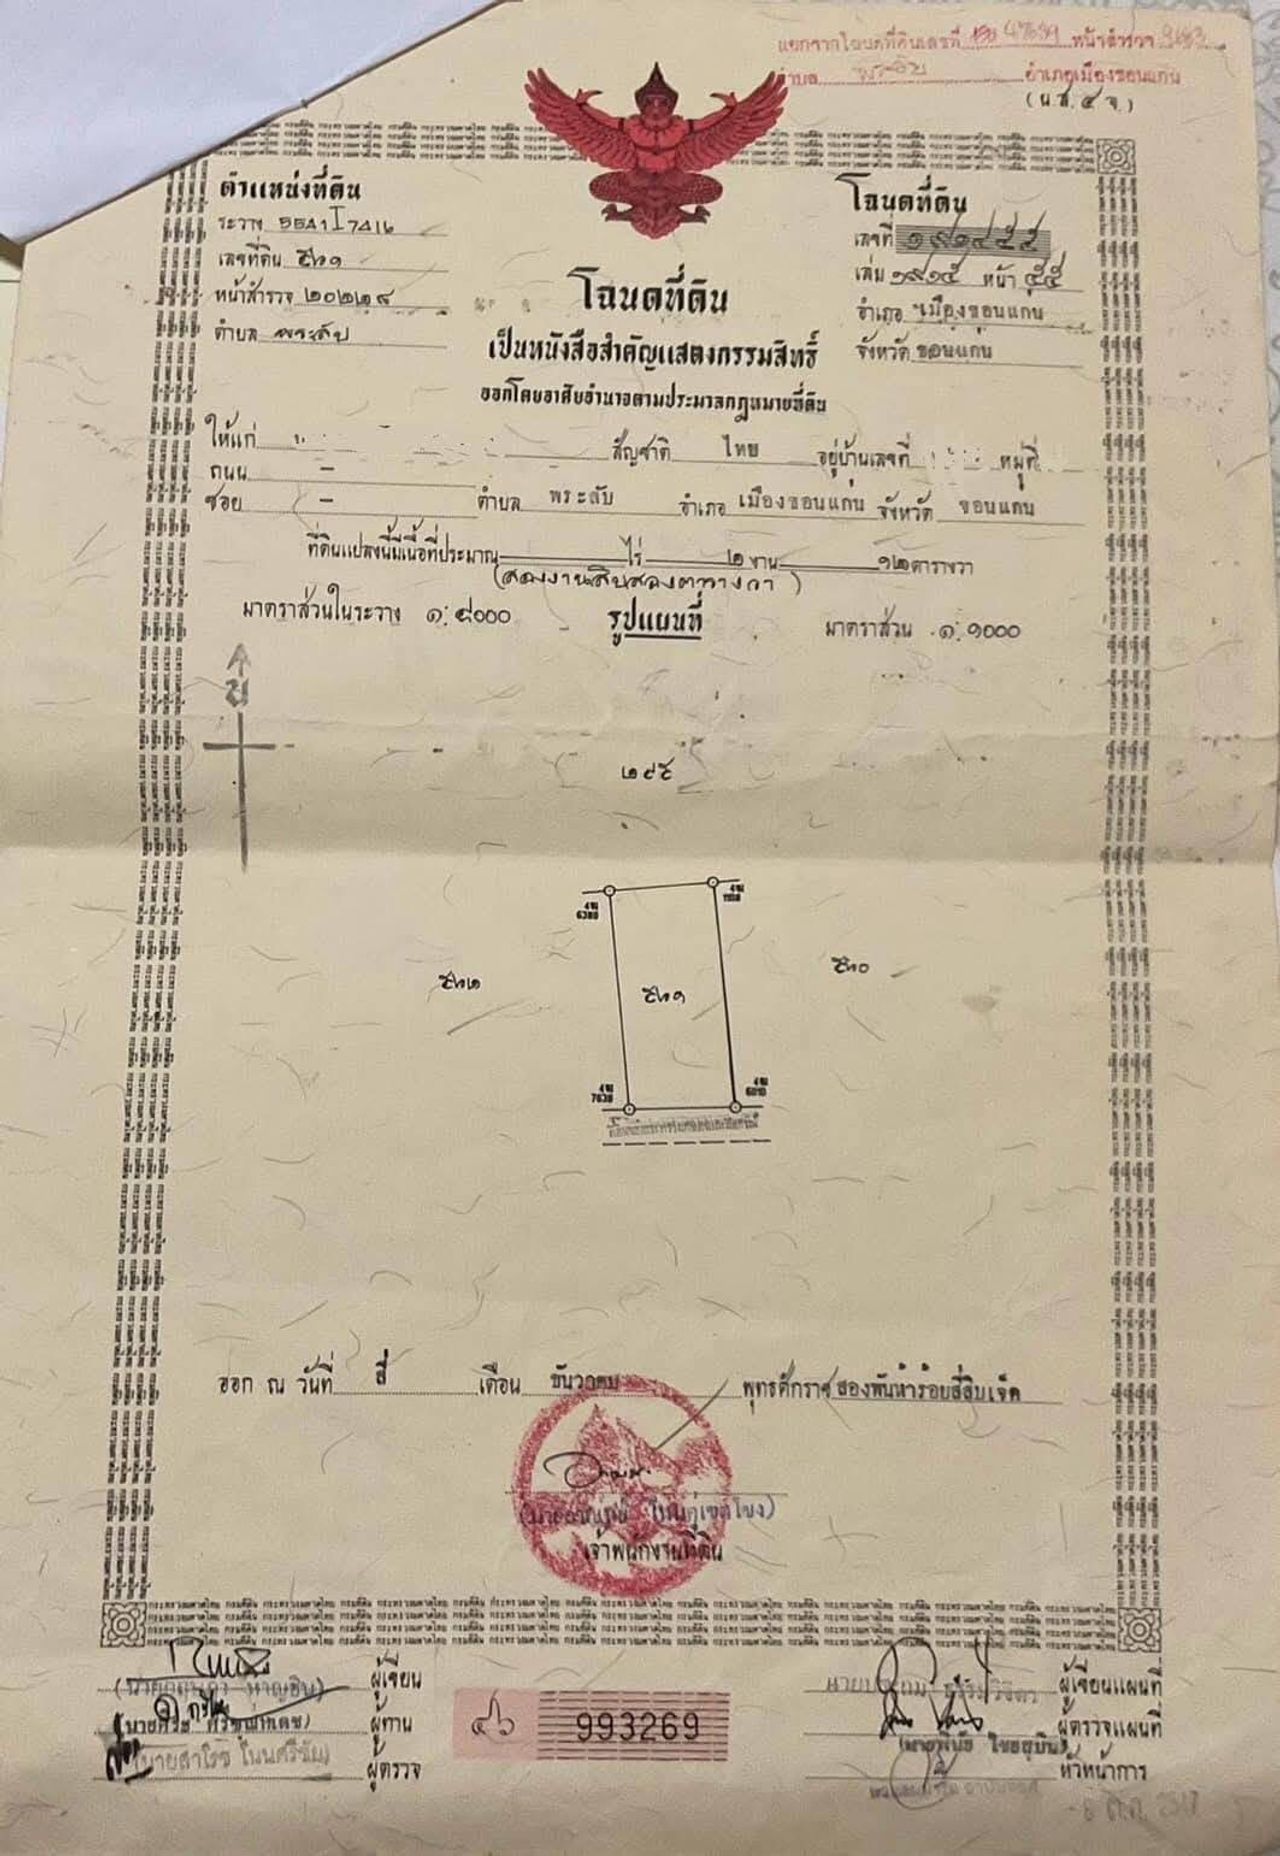 แยกจากโฉนดที่ดินเลขที่ 47639 หน้าสำรวจ
ตำบล พระลับ อำเภอเมืองขอนแก่น
(น.ส. ๔ จ.)
ตำแหน่งที่ดิน
ระวาง 5541 I 7416
เลขที่ดิน ๕๖๑
หน้าสำรวจ ๒๐๒๒๘
ตำบล พระลับ
โฉนดที่ดิน
เลขที่ ๑๙๑๔๕๕
เล่ม ๑๙๑๕ หน้า ๕๕
อำเภอ เมืองขอนแก่น
จังหวัด ขอนแก่น
โฉนดที่ดิน
เป็นหนังสือสำคัญแสดงกรรมสิทธิ์
ออกโดยอาศัยอำนาจตามประมวลกฎหมายที่ดิน
ให้แก่ สัญชาติ ไทย อยู่บ้านเลขที่ หมู่ที่
ถนน -
ซอย - ตำบล พระลับ อำเภอ เมืองขอนแก่น จังหวัด ขอนแก่น
ที่ดินแปลงนี้มีเนื้อที่ประมาณ ไร่ ๒ งาน ๑๒ ตารางวา
(สองงานสิบสองตารางวา)
มาตราส่วนในระวาง ๑:๔๐๐๐ รูปแผนที่ มาตราส่วน ๑:๑๐๐๐
น
๒๙๕
๕๖๒ ๕๖๑ ๕๖๐
ออก ณ วันที่ สี่ เดือน ธันวาคม พุทธศักราช สองพันห้าร้อยสี่สิบเจ็ด
เจ้าพนักงานที่ดิน
ผู้เขียน
ผู้ทาน
ผู้ตรวจ
๔๖ 993269
ผู้เขียนแผนที่
ผู้ตรวจแผนที่
หัวหน้าการ